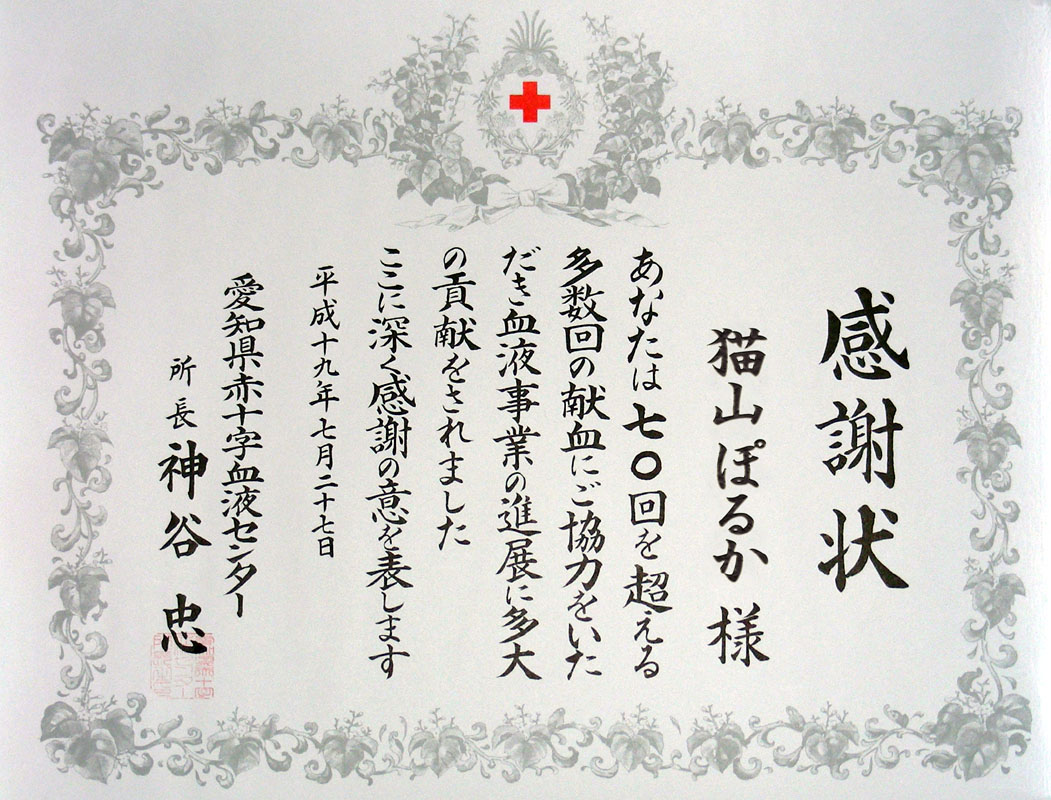 感謝状
猫山ぽるか 様
あなたは七〇回を超える
多数回の献血にご協力をいた
だき血液事業の進展に多大
の貢献をされました
ここに深く感謝の意を表します
平成十九年七月二十七日
愛知県赤十字血液センター
所長 神谷 忠